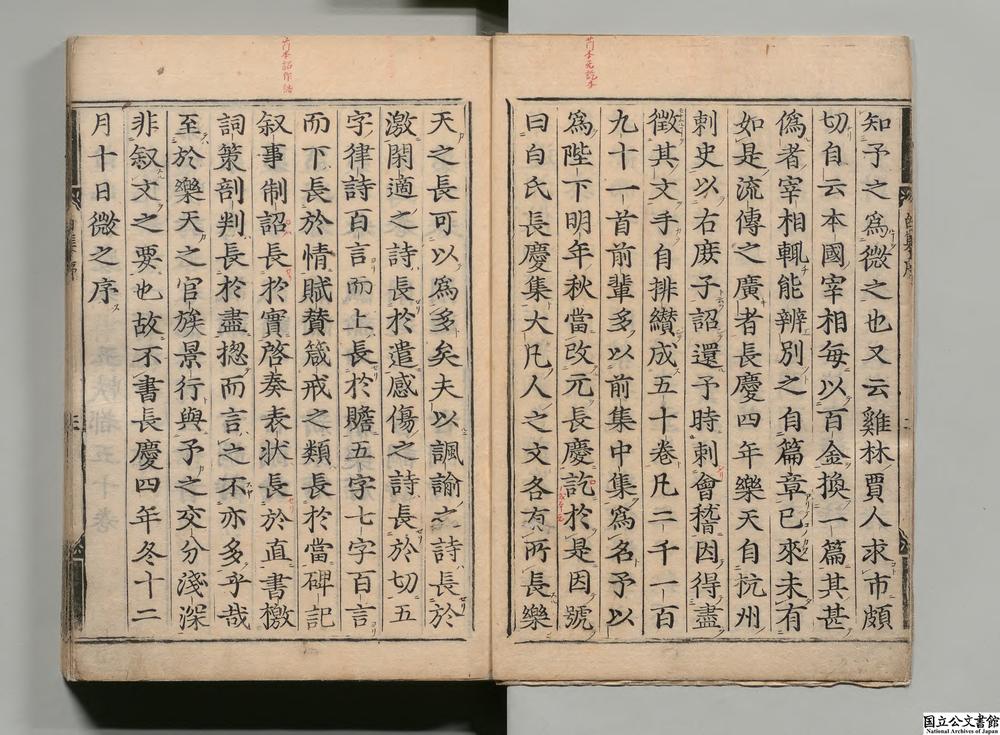 知予之爲微之也又云雞林賈人求市頗
切自云本國宰相每以百金換一篇其甚
僞者宰相輒能辨別之自篇章已來未有
如是流傳之廣者長慶四年樂天自杭州
刺史以右庶子詔還予時刺會稽因得盡
徵其文手自排纘成五十卷凡二千一百
九十一首前輩多以前集中集爲名予以
爲陛下明年秋當改元長慶訖於是因號
曰白氏長慶集大凡人之文各有所長樂
天之長可以爲多矣夫以諷諭之詩長於
激閑適之詩長於遣感傷之詩長於切五
字律詩百言而上長於贍五字七字百言
而下長於情賦贊箴戒之類長於當碑記
叙事制詔長於實啓奏表状長於直書檄
詞策剖判長於盡捴而言之不亦多乎哉
至於樂天之官族景行與予之交分淺深
非叙文之要也故不書長慶四年冬十二
月十日微之序
国立公文書館
National Archives of Japan